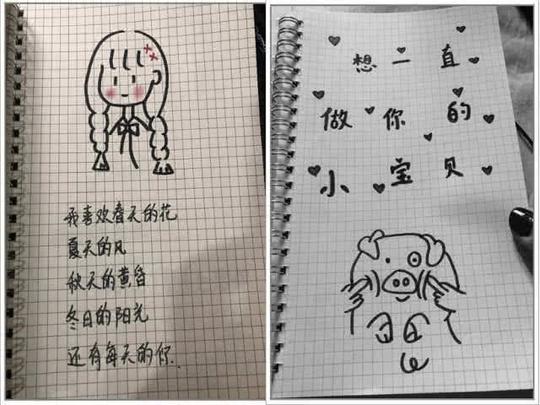 我喜欢春天的花
夏天的风
秋天的黄昏
冬日的阳光
还有每天的你.
想一直
做你的
小宝贝